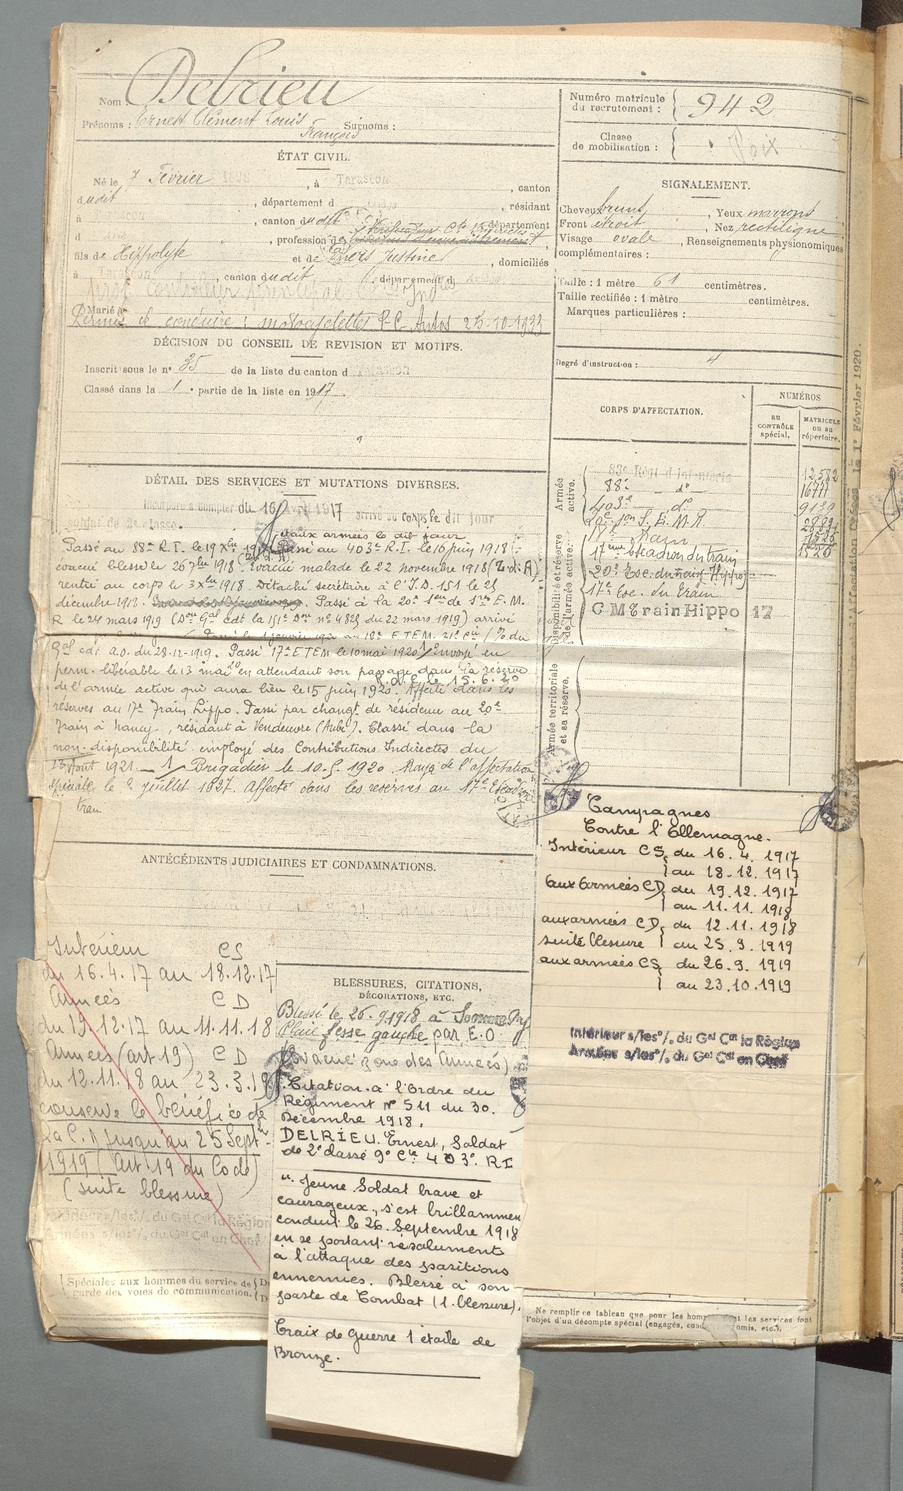 Nom Delrieu
Prénoms : Ernest Clément Louis Surnoms :
François
ÉTAT CIVIL.
Né le 7 Février 1898, à Tarascon, canton
dudit, département d, résidant
d, canton dudit, département
d, profession de
fils de Hippolyte et de Justine, domiciliés
à Tarascon, canton dudit, département d
Marié à
Permis de conduire : motocyclettes P.C. Autos 25-10-1933
DÉCISION DU CONSEIL DE REVISION ET MOTIFS.
Inscrit sous le n° 35 de la liste du canton d Tarascon
Classé dans la 1e partie de la liste en 1917.
DÉTAIL DES SERVICES ET MUTATIONS DIVERSES.
Incorporé à compter du 16 avril 1917 arrivé au corps le dit jour
soldat de 2e classe. aux armées le dit jour
Passé au 88e R.I. le 19 Xbre 1917 Passé au 403e R.I. le 16 juin 1918
évacué blessé le 26 7bre 1918. évacué malade le 22 novembre 1918 (Z.d.A)
rentré au corps le 3 Xbre 1918. Détaché secrétaire à l'I.D. 151 le 21
décembre 1918. Passé à la 20e Son de S. E. M.
R le 24 mars 1919 (Don Gal Cdt la 151e Don n° 4825 du 22 mars 1919) arrivé
Passé le 1 janvier 1920 au 18e ETEM. 21e Cie (% du
Gal Cdt A.O. du 28-12-1919. Passé 17e ETEM le 10 mai 1920. envoyé en
perm. libérable le 13 mai 20 en attendant son passage dans la réserve
de l'armée active qui aura lieu le 15 juin 1920. Affecté dans les
R.A.C. le 15.6.20
réserves au 17e Train Hippo. Passé par changt de résidence au 20e
Train à Nancy, résidant à Vendeuvre (Aube). Classé dans la
non-disponibilité employé des Contributions Indirectes du
13 Août 1921. 1 Brigadier le 10.5.1920 Rayé de l'affectation
spéciale le 2 juillet 1927. Affecté dans les réserves au 17e Escadr
train
ANTÉCÉDENTS JUDICIAIRES ET CONDAMNATIONS.
Intérieur CS
du 16.4.17 au 18.12.17
Armées CD
du 19.12.17 au 11.11.18
Armées (art. 19) CD
du 12.11.18 au 23.3.19
conserve le bénéfice de
la C. D jusqu'au 25 Sept
1919 (art. 19 du Code)
(suite blessure)
Intérieur s/les % du Gal Ct la Région
Armées s/les % du Gal Ct en Chef
(Spéciales aux hommes du service de
garde des voies de communication.
BLESSURES, CITATIONS,
DÉCORATIONS, ETC.
Blessé le 26.9.1918 à Somme Py
Plaie fesse gauche par E.O
(évacué zone des Armées)
Citation à l'Ordre du
Régiment N° 511 du 30.
Décembre 1918.
DELRIEU. Ernest, Soldat
de 2e classe 9e Cie 403e. RI
"Jeune Soldat brave et
courageux, s'est brillamment
conduit le 26. Septembre 1918
en se portant résolument
à l'attaque des positions
ennemies. Blessé à son
poste de Combat (1. blessure).
Croix de Guerre 1 étoile de
Bronze.
Numéro matricule
du recrutement : 942
Classe
de mobilisation :
Foix
SIGNALEMENT.
Cheveux bruns, Yeux marrons
Front étroit, Nez rectiligne
Visage ovale, Renseignements physionomiques
complémentaires :
Taille : 1 mètre 61 centimètres.
Taille rectifiée : 1 mètre centimètres.
Marques particulières :
Degré d'instruction : 4
CORPS D'AFFECTATION.
NUMÉROS
AU
CONTRÔLE
spécial.
MATRICULE
ou au
répertoire.
Armée
active.
83e Régt d'Infanterie 12582
88e — do — 16777
403e — do 9139
20e Son S. E. M. R.
Disponibilité et réserve
de l'armée active.
17ème Escadron du train 1520
20e Esc. du train (Hippo)
17e Esc. du train
C M Train Hippo 17
Armée territoriale
et sa réserve.
Campagnes
Contre l'Allemagne.
Intérieur CS, du 16. 4. 1917
au 18-12. 1917
aux Armées CD, du 19. 12. 1917
au 11. 11. 1918
aux armées CD, du 12. 11. 1918
suite blessure au 25. 9. 1919
aux armées CS, du 26. 9. 1919
au 23. 10. 1919
Intérieur s/les % du Gal Ct la Région
Armées s/les % du Gal Ct en Chef
Ne remplir ce tableau que pour les hommes dont les services font
l'objet d'un décompte spécial (engagés, omis, etc.).
le 1er Février 1920.